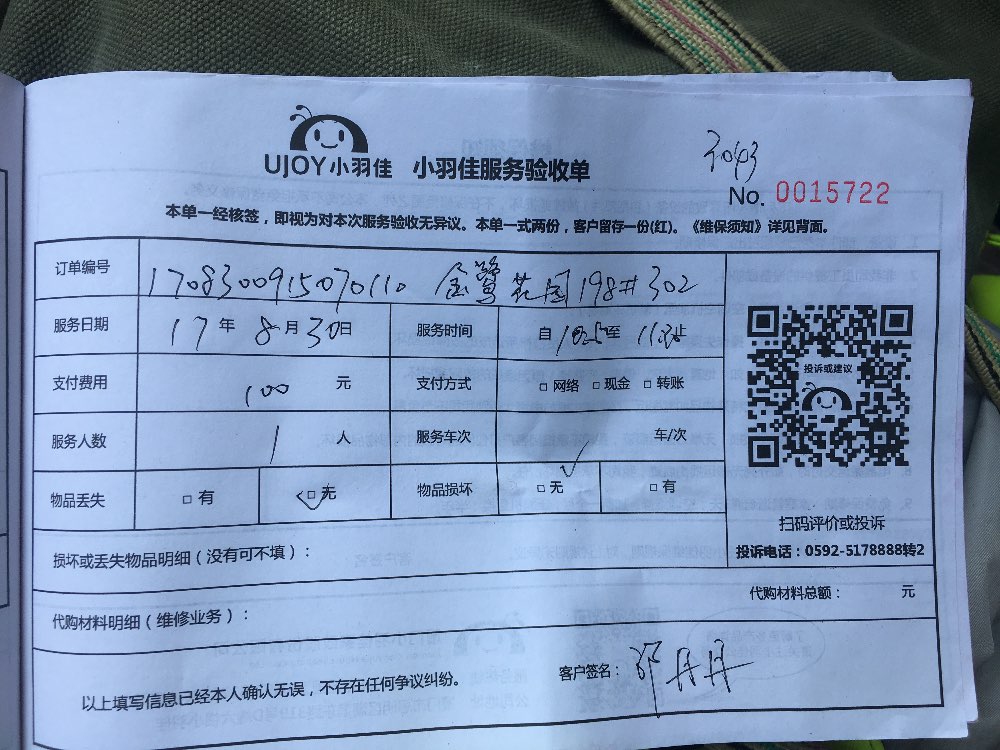 UJOY小羽佳 小羽佳服务验收单
No. 0015722
本单一经核签，即视为对本次服务验收无异议。本单一式两份，客户留存一份(红)。《维保须知》详见背面。
订单编号 1708300915070110 金鹭花园198#302
服务日期 17年8月30日 服务时间 自 至 止
支付费用 100 元 支付方式 □网络 □现金 □转账
服务人数 1 人 服务车次 车/次
物品丢失 □有 □无 物品损坏 □无 □有
投诉或建议
扫码评价或投诉
投诉电话：0592-5178888转2
损坏或丢失物品明细（没有可不填）：
代购材料总额： 元
代购材料明细（维修业务）：
客户签名： 丹丹
以上填写信息已经本人确认无误，不存在任何争议纠纷。